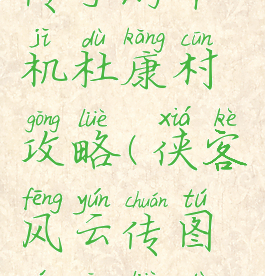 jī dù kāng cūn
机杜康村
gōng lüè xiá kè
攻略(侠客
fēng yún chuán tú
风云传图